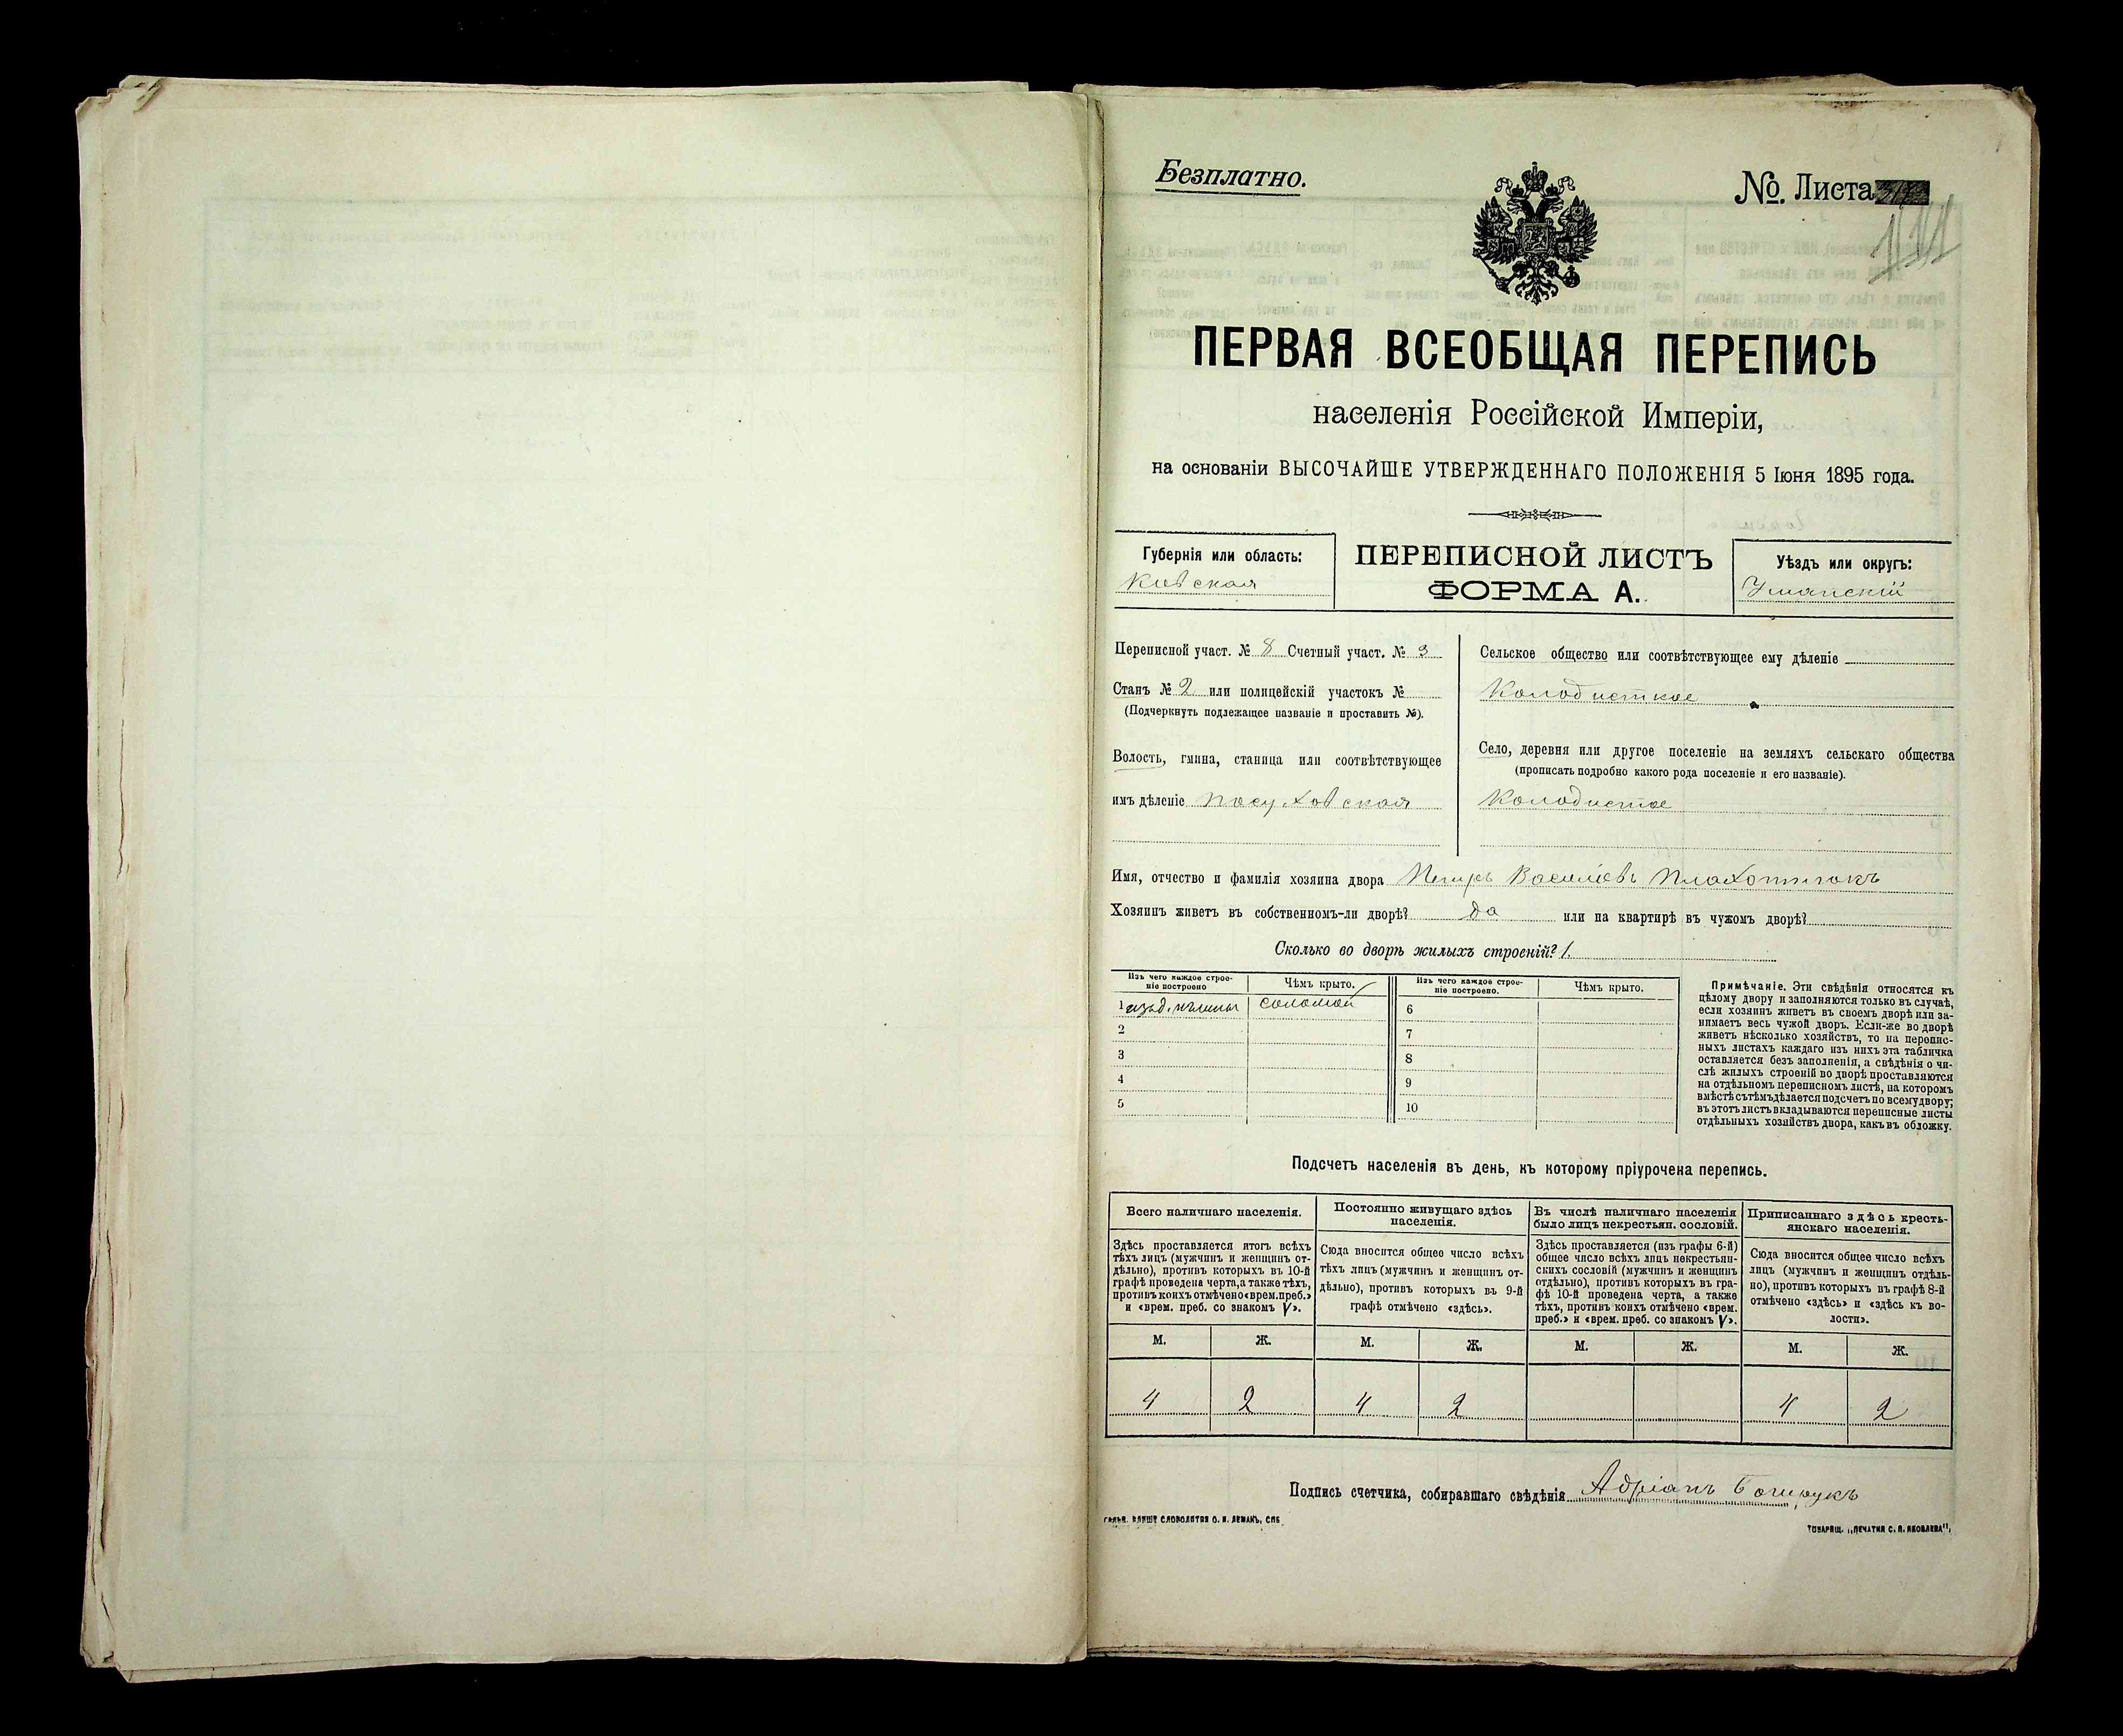 Безплатно.
№. Листа
ПЕРВАЯ ВСЕОБЩАЯ ПЕРЕПИСЬ
населенія Россійской Имперіи,
на основаніи ВЫСОЧАЙШЕ УТВЕРЖДЕННАГО ПОЛОЖЕНІЯ 5 Іюня 1895 года.
Губернія или область:
Кіевская
ПЕРЕПИСНОЙ ЛИСТЪ
ФОРМА А.
Уѣздъ или округъ:
Уманскій
Переписной участ. № 8 Счетный участ. № 3
Станъ № 2 или полицейскій участокъ №
(Подчеркнуть подлежащее названіе и проставить №).
Волость, гмина, станица или соотвѣтствующее
имъ дѣленіе Посуховская
Сельское общество или соотвѣтствующее ему дѣленіе
Колодисткое
Село, деревня или другое поселеніе на земляхъ сельскаго общества
(прописать подробно какого рода поселеніе и его названіе).
Колодистое
Имя, отчество и фамилія хозяина двора Петръ Василіевъ Плахотнюкъ
Хозяинъ живетъ въ собственномъ-ли дворѣ? да или на квартирѣ въ чужомъ дворѣ?
Сколько во дворѣ жилыхъ строеній? 1.
Изъ чего каждое строе-
ніе построено
Чѣмъ крыто.
1 соломой
2
3
4
5
Изъ чего каждое строе-
ніе построено.
Чѣмъ крыто.
6
7
8
9
10
Примѣчаніе. Эти свѣдѣнія относятся къ
цѣлому двору и заполняются только въ случаѣ,
если хозяинъ живетъ въ своемъ дворѣ или за-
нимаетъ весь чужой дворъ. Если-же во дворѣ
живетъ нѣсколько хозяйствъ, то на перепис-
ныхъ листахъ каждаго изъ нихъ эта табличка
оставляется безъ заполненія, а свѣдѣнія о чи-
слѣ жилыхъ строеній во дворѣ проставляются
на отдѣльномъ переписномъ листѣ, на которомъ
вмѣстѣ съ тѣмъ дѣлается подсчетъ по всему двору;
въ этотъ листъ вкладываются переписные листы
отдѣльныхъ хозяйствъ двора, какъ въ обложку.
Подсчетъ населенія въ день, къ которому пріурочена перепись.
Всего наличнаго населенія.
Здѣсь проставляется итогъ всѣхъ
тѣхъ лицъ (мужчинъ и женщинъ от-
дѣльно), противъ которыхъ въ 10-й
графѣ проведена черта, а также тѣхъ,
противъ коихъ отмѣчено «врем. преб.»
и «врем. преб. со знакомъ V».
М. Ж.
4 2
Постоянно живущаго здѣсь
населенія.
Сюда вносится общее число всѣхъ
тѣхъ лицъ (мужчинъ и женщинъ от-
дѣльно), противъ которыхъ въ 9-й
графѣ отмѣчено «здѣсь».
М. Ж.
4 2
Въ числѣ наличнаго населенія
было лицъ некрестьян. сословій.
Здѣсь проставляется (изъ графы 6-й)
общее число всѣхъ лицъ некрестьян-
скихъ сословій (мужчинъ и женщинъ
отдѣльно), противъ которыхъ въ гра-
фѣ 10-й проведена черта, а также
тѣхъ, противъ коихъ отмѣчено «врем.
преб.» и «врем. преб. со знакомъ V».
М. Ж.
Приписаннаго здѣсь кресть-
янскаго населенія.
Сюда вносится общее число всѣхъ
лицъ (мужчинъ и женщинъ отдѣль-
но), противъ которыхъ въ графѣ 8-й
отмѣчено «здѣсь» и «здѣсь къ во-
лости».
М. Ж.
4 2
Подпись счетчика, собиравшаго свѣдѣнія Адріанъ
ГАЛЬВ. КЛИШЕ СЛОВОЛИТНИ О. И. ЛЕМАНЪ, СПБ
ТОВАРИЩ. „ПЕЧАТНЯ С. П. ЯКОВЛЕВА",